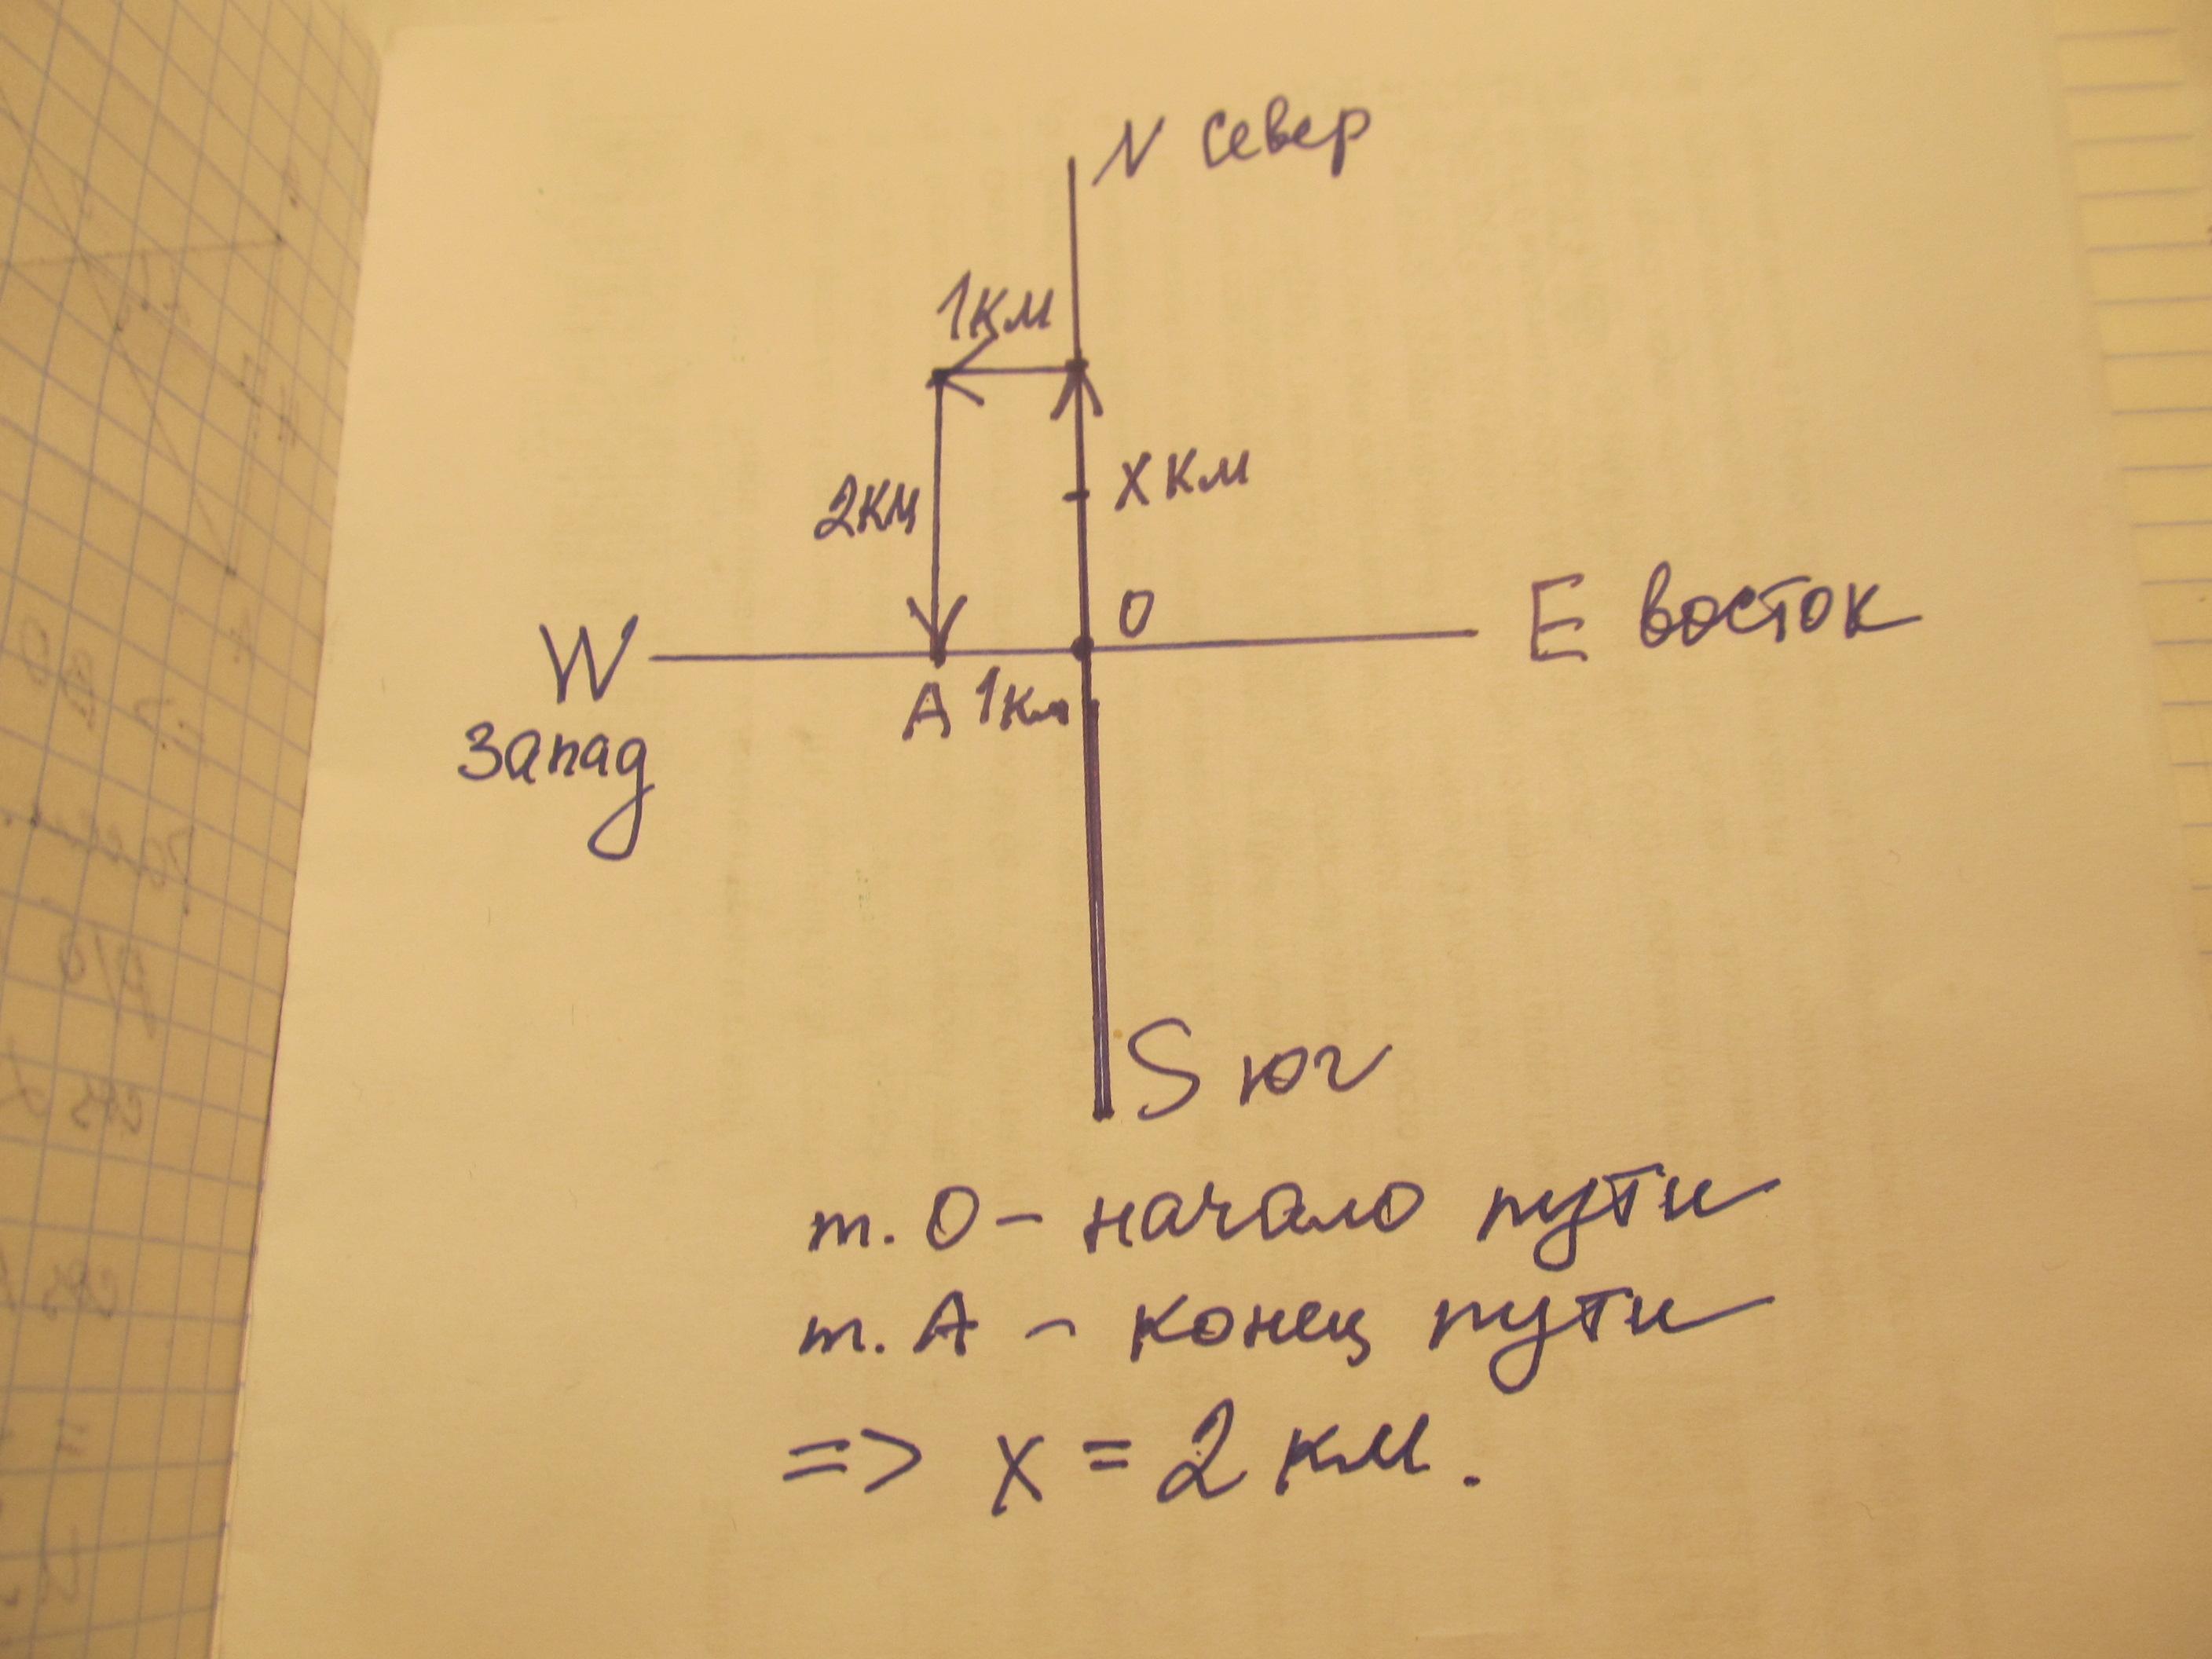 N север
1км
x км
2км
O
W
E восток
A 1км
запад
S юг
т. O – начало пути
т. A – конец пути
=> x = 2 км.